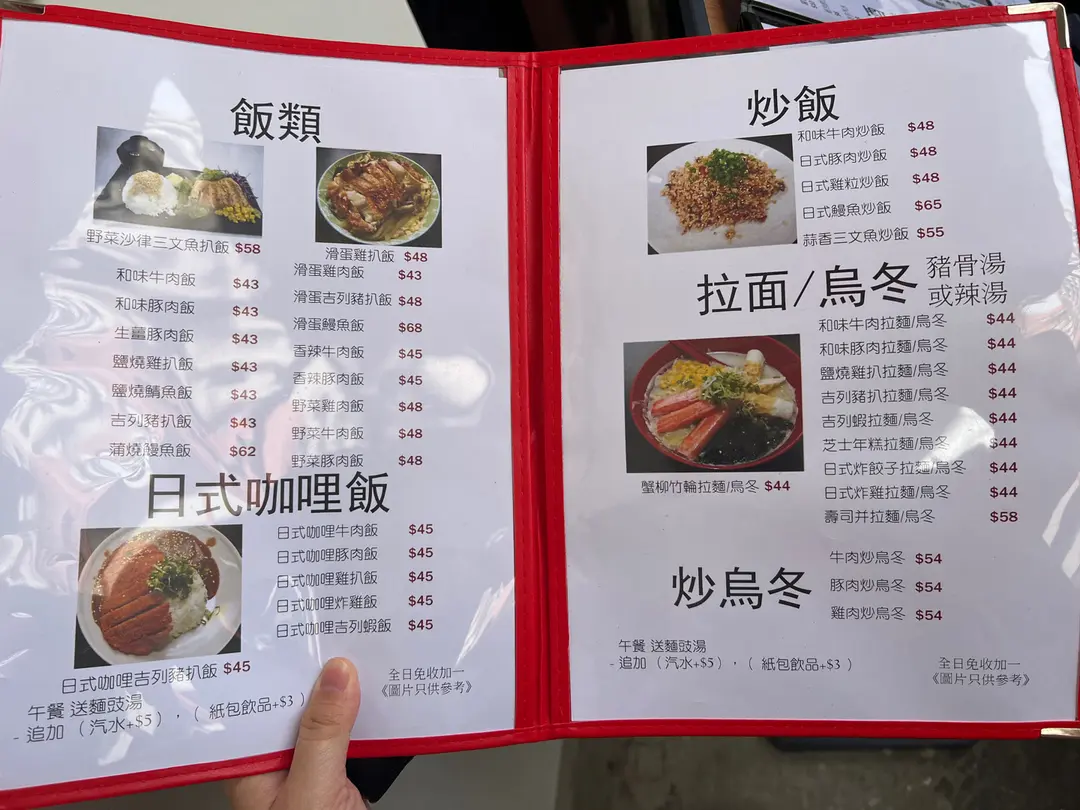 飯類
野菜沙律三文魚扒飯 $58
和味牛肉飯 $43
和味豚肉飯 $43
生薑豚肉飯 $43
鹽燒雞扒飯 $43
鹽燒鯖魚飯 $43
吉列豬扒飯 $43
蒲燒鰻魚飯 $62
滑蛋雞扒飯 $48
滑蛋雞肉飯 $43
滑蛋吉列豬扒飯 $48
滑蛋鰻魚飯 $68
香辣牛肉飯 $45
香辣豚肉飯 $45
野菜雞肉飯 $48
野菜牛肉飯 $48
野菜豚肉飯 $48
日式咖哩飯
日式咖哩牛肉飯 $45
日式咖哩豚肉飯 $45
日式咖哩雞扒飯 $45
日式咖哩炸雞飯 $45
日式咖哩吉列蝦飯 $45
日式咖哩吉列豬扒飯 $45
午餐 送麵豉湯
- 追加（汽水+$5），（ 紙包飲品+$3 ）
全日免收加一
《圖片只供參考》
炒飯
和味牛肉炒飯 $48
日式豚肉炒飯 $48
日式雞粒炒飯 $48
日式鰻魚炒飯 $65
蒜香三文魚炒飯 $55
拉面/烏冬 豬骨湯
或辣湯
和味牛肉拉麵/烏冬 $44
和味豚肉拉麵/烏冬 $44
鹽燒雞扒拉麵/烏冬 $44
吉列豬扒拉麵/烏冬 $44
吉列蝦拉麵/烏冬 $44
芝士年糕拉麵/烏冬 $44
日式炸餃子拉麵/烏冬 $44
日式炸雞拉麵/烏冬 $44
壽司并拉麵/烏冬 $58
蟹柳竹輪拉麵/烏冬 $44
炒烏冬
牛肉炒烏冬 $54
豚肉炒烏冬 $54
雞肉炒烏冬 $54
午餐 送麵豉湯
- 追加（汽水+$5），（ 紙包飲品+$3 ）
全日免收加一
《圖片只供參考》